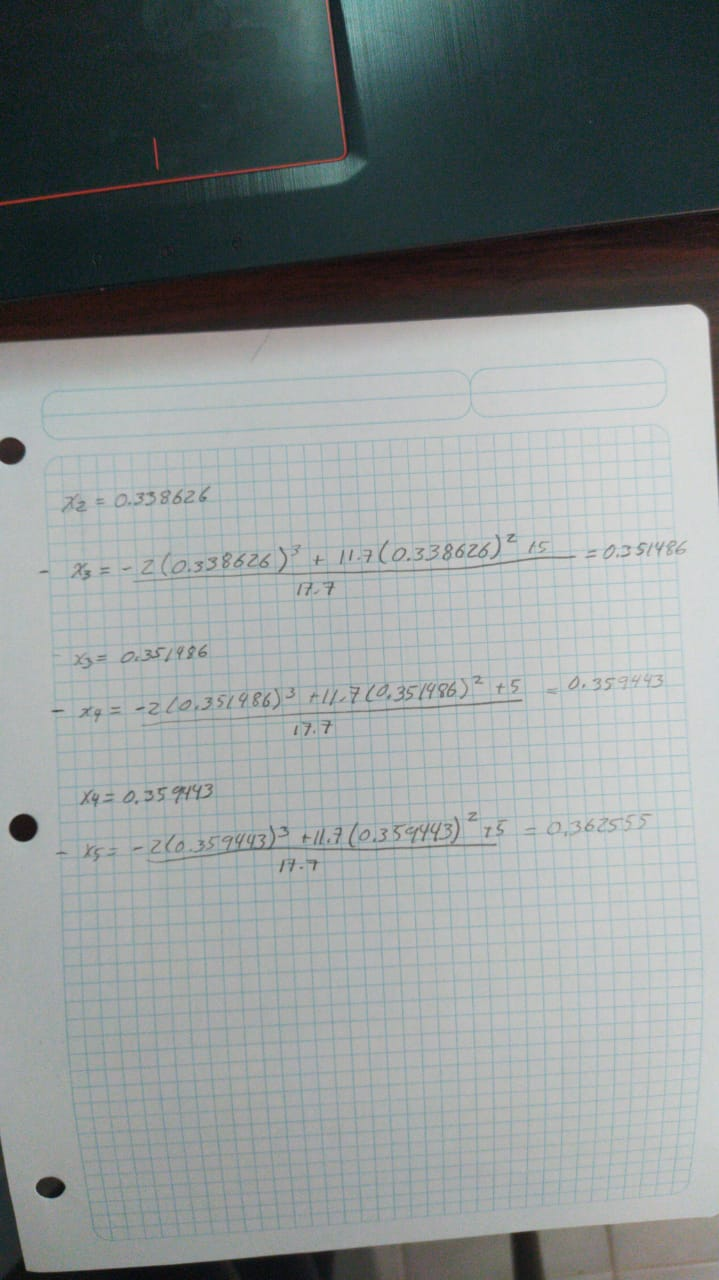 x2 = 0.338626
- x3 = -2(0.338626)³ + 11.7(0.338626)² +5 = 0.351486
17.7
x3 = 0.351486
- x4 = -2(0.351486)³ +11.7(0.351486)² +5 = 0.359443
17.7
x4 = 0.359443
- x5 = -2(0.359443)³ +11.7(0.359443)² +5 = 0.362555
17.7